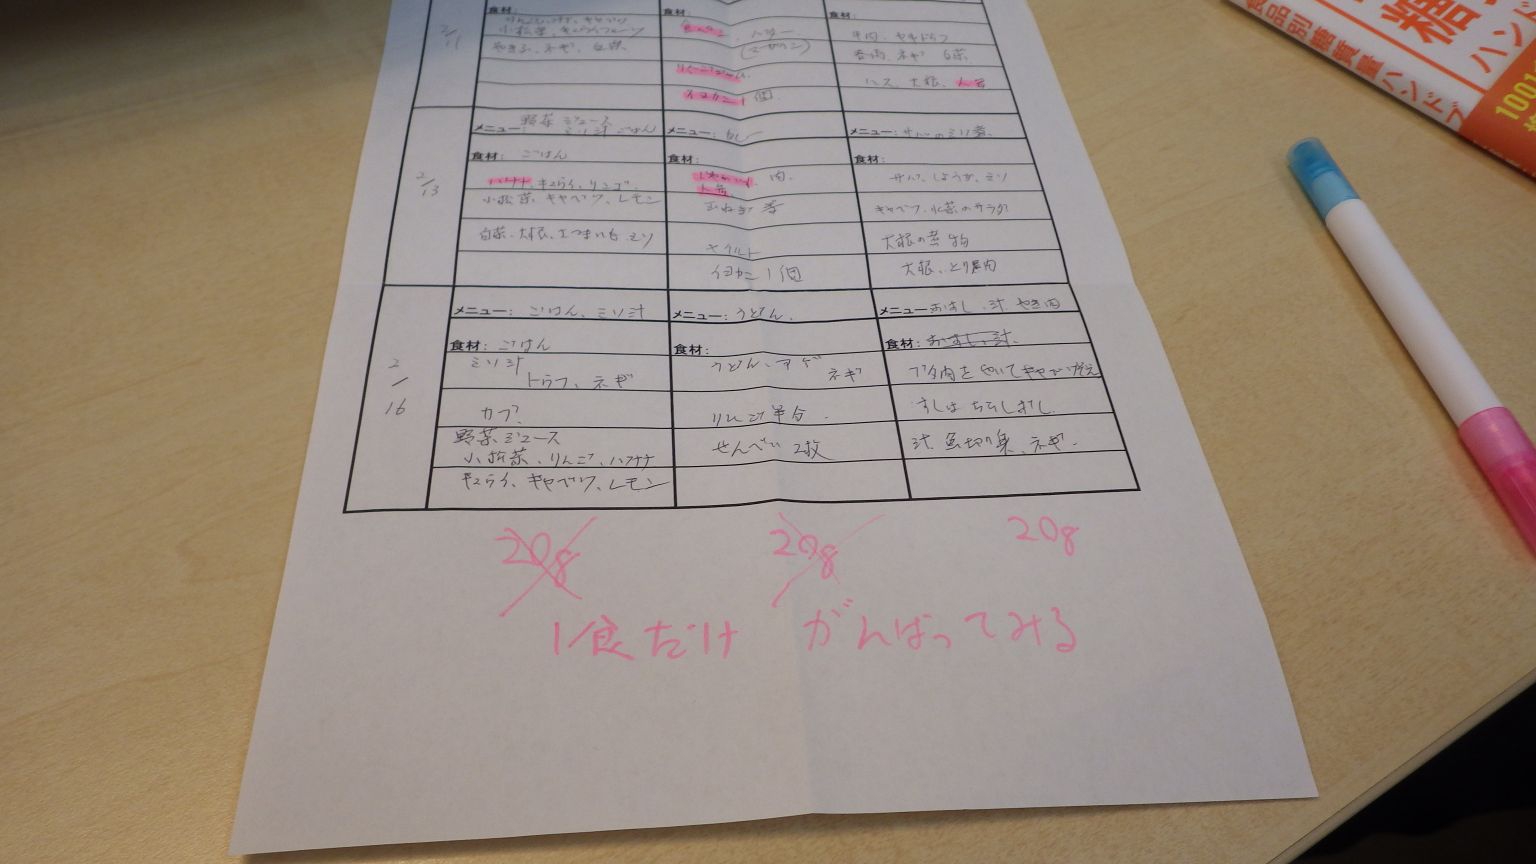 2/11
食材:
小松菜、キュウイフルーツ
ネギ、白菜
食材:
バター
(マーガリン)
イヨカン1個
食材:
牛肉、ヤキドウフ
春菊、ネギ 白菜
ハス、大根、人参
2/13
野菜ジュース
メニュー: ミソ汁 ごはん
食材: ごはん
バナナ、キュウイ、リンゴ
小松菜、キャベツ、レモン
白菜、大根、さつまいも ミソ
メニュー: カレー
食材:
じゃがいも、肉
人参
玉ねぎ
ヤクルト
イヨカン1個
メニュー: サバのミソ煮
食材:
サバ、しょうが、ミソ
キャベツ、水菜のサラダ
大根の煮物
大根、とり肉
2/16
メニュー: ごはん、ミソ汁
食材: ごはん
ミソ汁
トウフ、ネギ
カブ
野菜ジュース
小松菜、りんご、バナナ
キュウイ、キャベツ、レモン
メニュー: うどん
食材:
うどん、アゲ
ネギ
リンゴ半分
せんべい2枚
メニュー おすし、汁 やき肉
食材: おすし、汁
ブタ肉をやいてキャベツ
すしはちらしずし
汁 ネギ
20g
20g
20g
1食だけ がんばってみる
糖
ハンド
食品別糖質量ハンドブ
1001